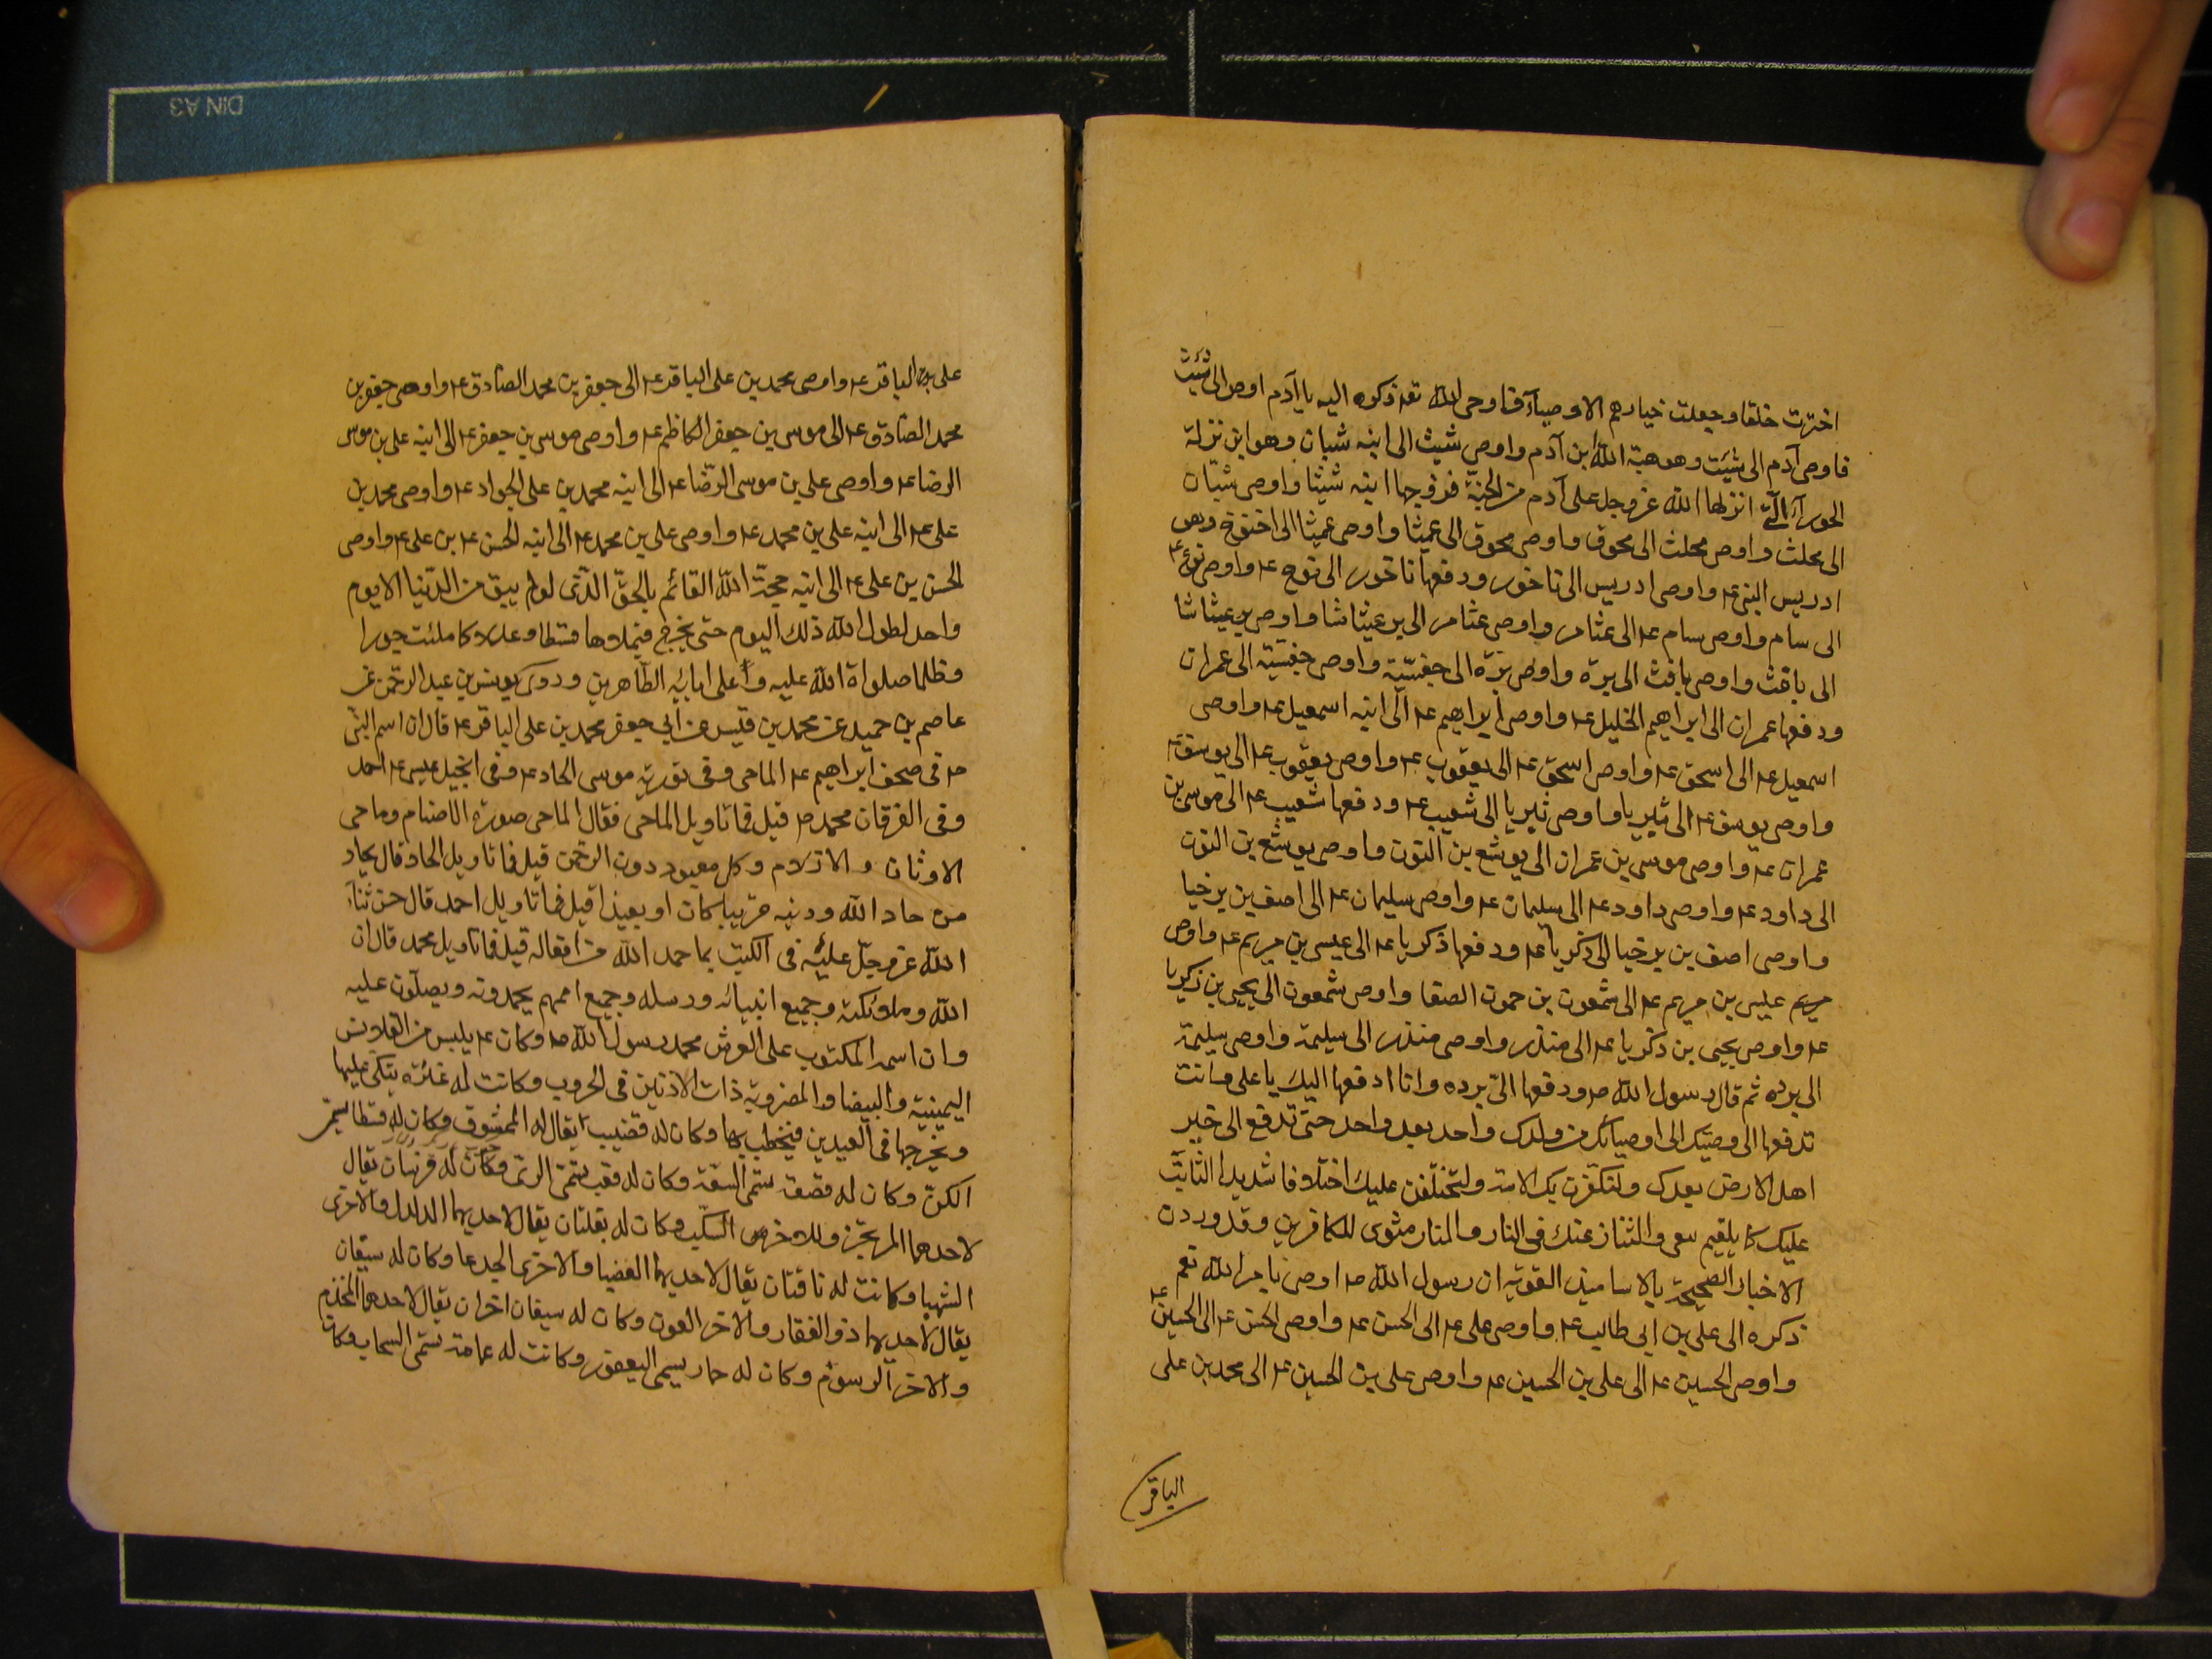 اخترت خلقا وجعلت خيارهم الاوصيآء فاوحى الله تعه ذكره اليه يا آدم اوص الى شيث
فاوصى آدم الى شيث وهو هبة الله بن آدم واوصى شيث الى ابنه شبان وهو ابن نزلة
الحورآء الّتى انزلها الله عزوجل على آدم من الجنة فزوجها ابنه شيثا واوصى شبان
الى محلث واوصى محلث الى محوق واوصى محوق الى عميثا واوصى عميثا الى اخنوخ وهو
ادريس النبى ع واوصى ادريس الى ناخور ودفعها ناخور الى نوح ع واوصى نوح ع
الى سام واوصى سام ع الى عثامر واوصى عثامر الى برعيثاشا واوصى برعيثاشا
الى يافث واوصى يافث الى برة واوصى برة الى جفسيّة واوصى جفسيّة الى عمران
ودفعها عمران الى ابراهيم الخليل ع واوصى ابراهيم ع الى ابنه اسمعيل ع واوصى
اسمعيل ع الى اسحق ع واوصى اسحق ع الى يعقوب ع واوصى يعقوب ع الى يوسف ع
واوصى يوسف ع الى ثيريا واوصى ثيريا الى شعيب ع ودفعها شعيب ع الى موسى بن
عمران ع واوصى موسى بن عمران الى يوشع بن النون واوصى يوشع بن النون
الى داود ع واوصى داود ع الى سليمان ع واوصى سليمان ع الى اصف بن برخيا
واوصى اصف بن برخيا الى ذكريا ع ودفعها ذكريا ع الى عيسى بن مريم ع واوصى
مريم عيسى بن مريم ع الى شمعون بن حمون الصفا واوصى شمعون الى يحيى بن زكريا
ع واوصى يحيى بن ذكريا ع الى منذر واوصى منذر الى سليمة واوصى سليمة
الى برده ثم قال رسول الله ص ودفعها الىّ برده وانا ادفعها اليك يا على وانت
تدفعها الى وصيك الى اوصيائك من ولدك واحد بعد واحد حتى تدفع الى خير
اهل الارض بعدك ولتكفرن بك الامة ولتختلفن عليك اختلافا شديدا الثابت
عليك كالمقيم معى والشاذ عنك فى النار والنار مثوى للكافرين وقد وردت
الاخبار الصحيحة بالاسانيد القوية ان رسول الله ص اوصى بامر الله تعه
ذكره الى على بن ابى طالب ع واوصى على ع الى الحسن ع واوصى الحسن ع الى الحسين ع
واوصى الحسين ع الى على بن الحسين ع واوصى على بن الحسين ع الى محمد بن على
الباقر
على الباقر ع واوصى محمد بن على الباقر ع الى جعفر بن محمد الصادق ع واوصى جعفر بن
محمد الصادق ع الى موسى بن جعفر الكاظم ع واوصى موسى بن جعفر ع الى ابنه على بن موسى
الرضا ع واوصى على بن موسى الرّضا ع الى ابنه محمد بن على الجواد ع واوصى محمد بن
على ع الى ابنه على بن محمد ع واوصى على بن محمد ع الى ابنه الحسن ع بن على ع واوصى
الحسن بن على ع الى ابنه حجة الله القائم بالحقّ الّذى لو لم يبق من الدّنيا الا يوم
واحد لطول الله ذلك اليوم حتى يخرج فيملاوها قسطا وعدلا كما ملئت جورا
وظلما صلواة الله عليه وعلى ابائه الطّاهرين وروى يونس بن عبد الرحمن عن
عاصم بن حميد عن محمد بن قيس عن ابى جعفر محمد بن على الباقر ع قال ان اسم النبىّ
ص فى صحف ابراهيم ع الماحى وفى تورية موسى الحاد ع وفى انجيل عيسى ع احمد
وفى الفرقان محمد ص قيل فما تاويل الماحى فقال الماحى صورة الاصنام وماحى
الاوثان والازلام وكل معبود دون الرحمن قيل فما تاويل الحاد قال يحاد
من حاد الله ودينه قريبا كان او بعيدا قيل فما تاويل احمد قال حسن ثناء
الله عزوجل عليه فى الكتب بما حمد الله من افعاله قيل فما تاويل محمد قال ان
الله وملائكته وجميع انبيائه ورسله وجميع اممهم يحمدونه ويصلّون عليه
وان اسمه المكتوب على العرش محمد رسول الله ص وكان ع يلبس من القلانس
اليمنية والبيضا والمضروبة ذات الاذنين فى الحروب وكانت له عنزة يتكى عليها
ويخرجها فى العيدين فيخطب بها وكان له قضيب يقال له الممشوق وكان له فسطا يسمّى
الكنّ وكان له قصعة تسمى السعة وكان له قعب يسمّى الرى وكان له فرسان يقال
لاحدهما المرتجز وللاخرى السكب وكان له بغلتان يقال لاحديهما الدلدل والاخرى
الشهبا وكانت له ناقتان يقال لاحديهما العضبا والاخرى الجدعا وكان له سيفان
يقال لاحديهما ذو الفقار والاخر العون وكان له سيفان اخران يقال لاحدهما المخذم
والاخر الرسوم وكان له حمار يسمى اليعفور وكانت له عمامة تسمى السحاب وكان